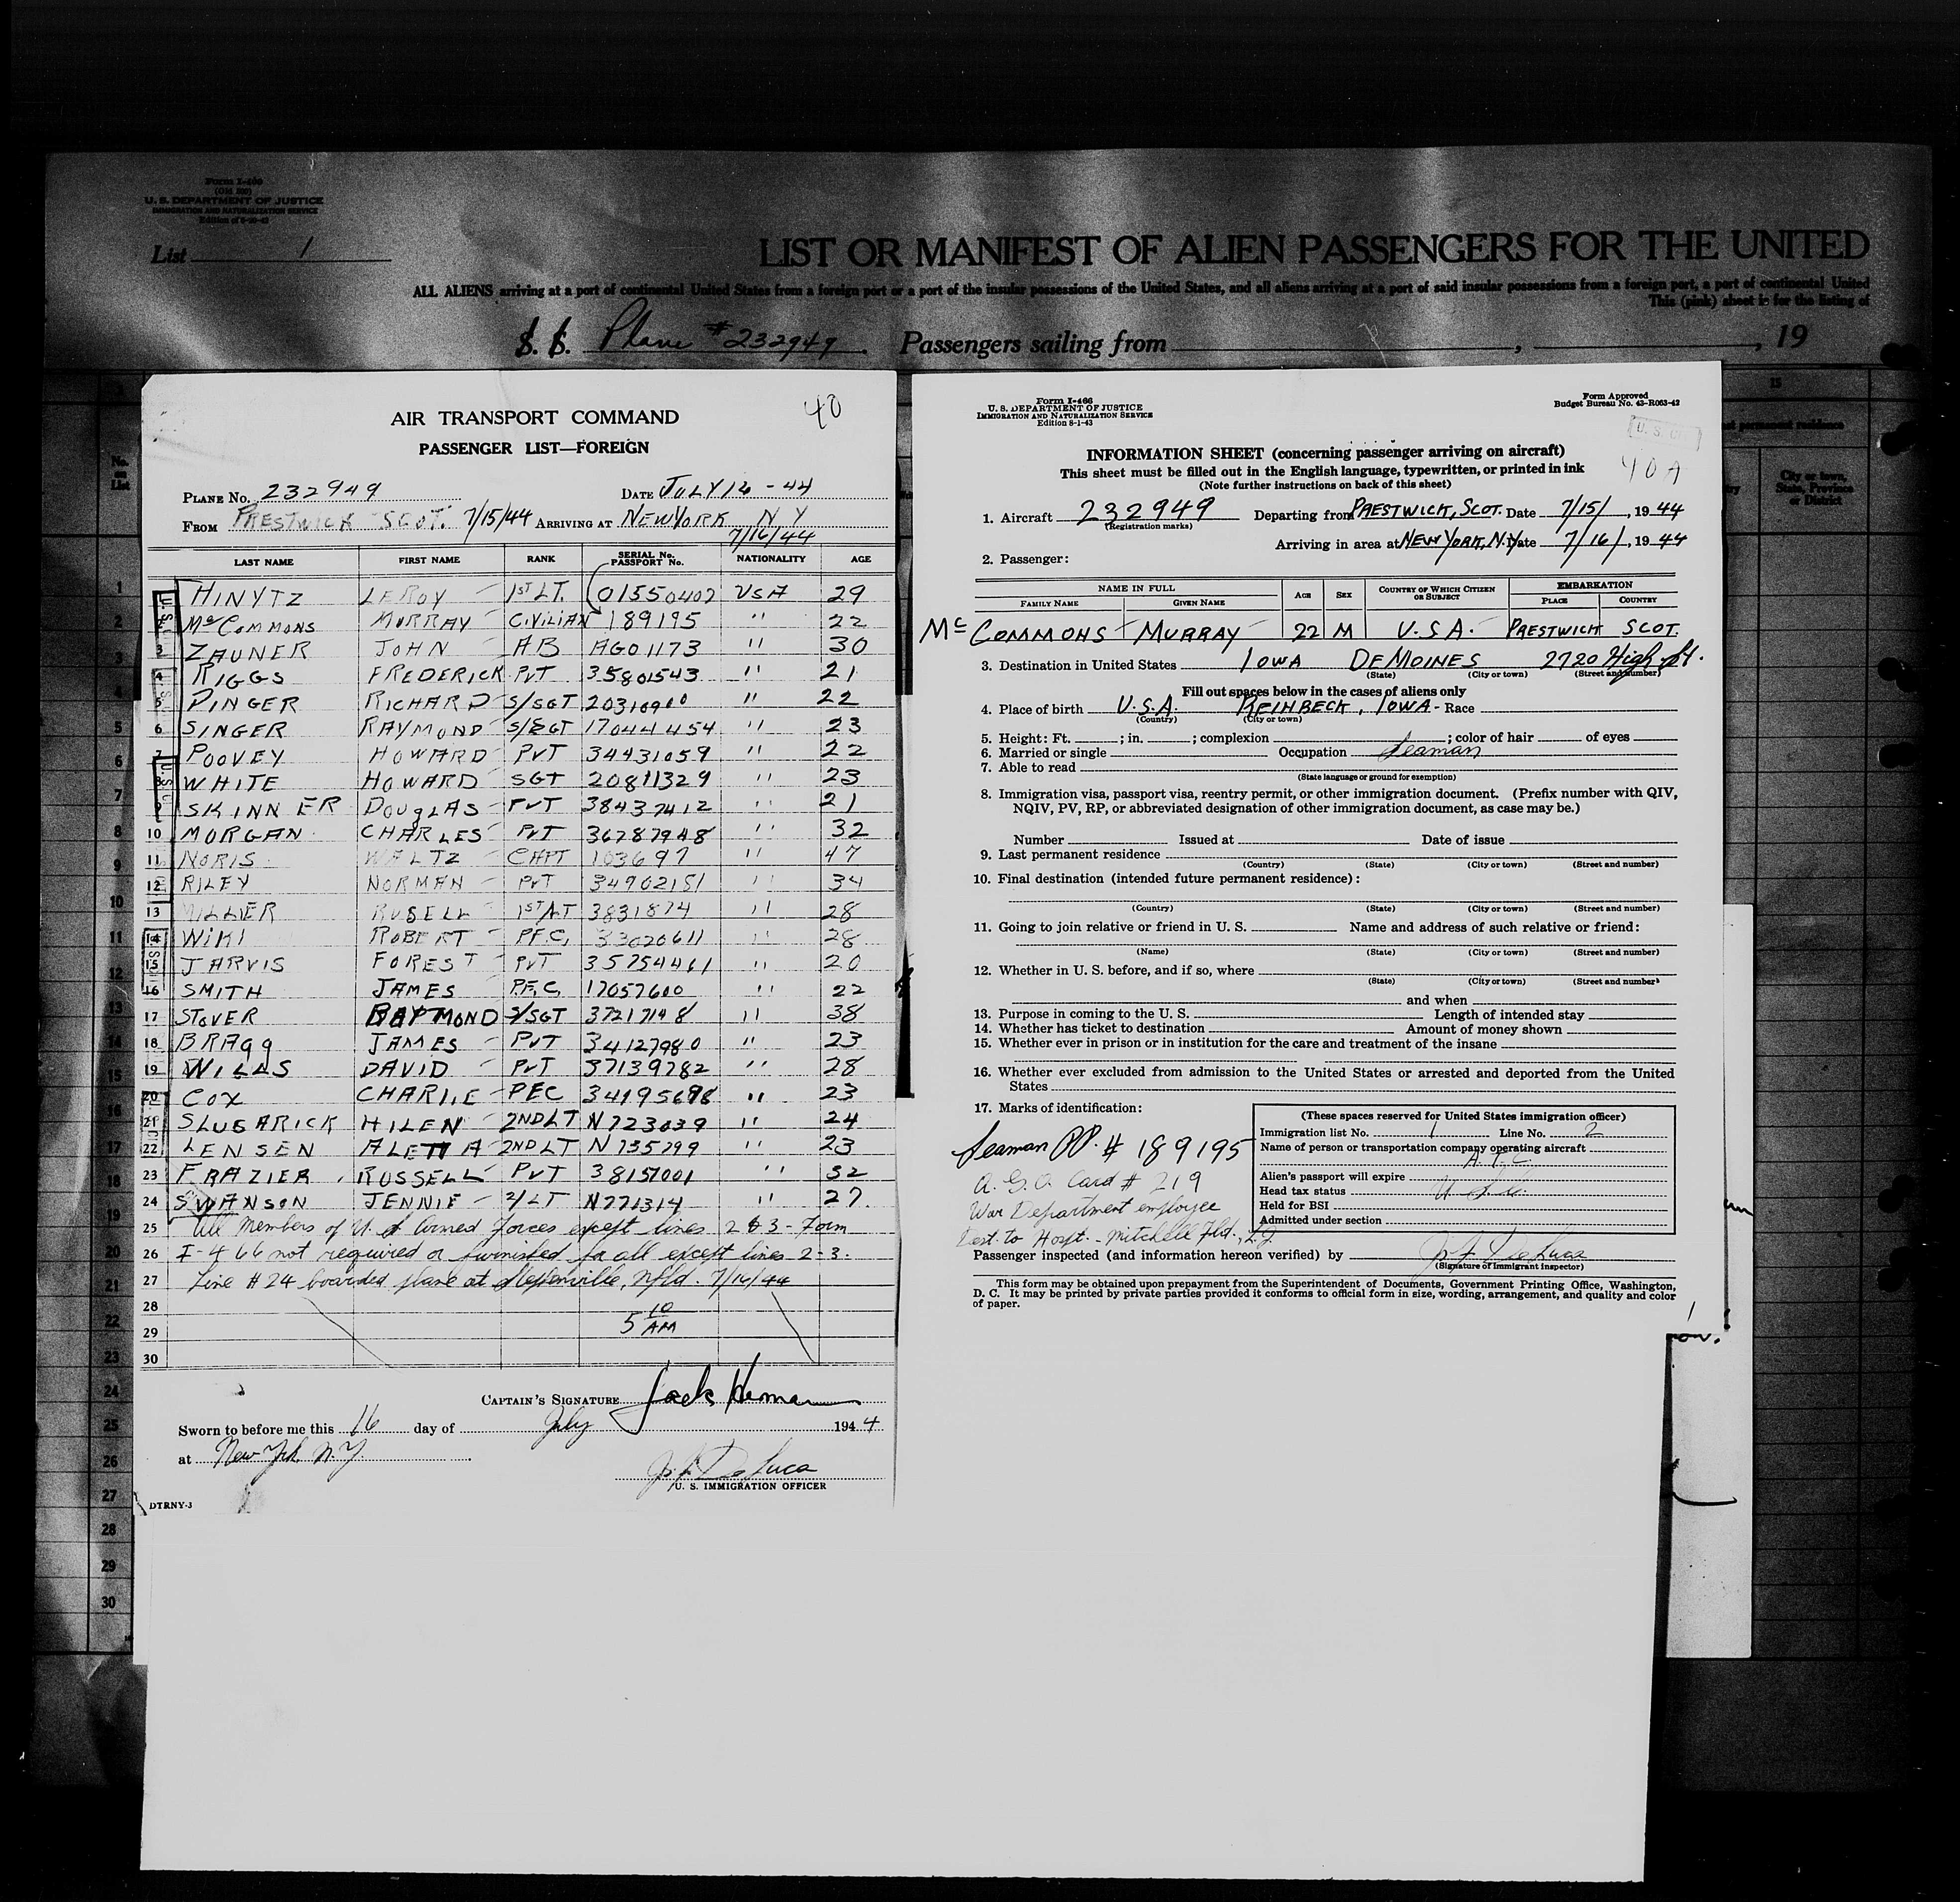 Form I-466
(Old 500)
U. S. DEPARTMENT OF JUSTICE
IMMIGRATION AND NATURALIZATION SERVICE
List 1
LIST OR MANIFEST OF ALIEN PASSENGERS FOR THE UNITED
ALL ALIENS arriving at a port of continental United States from a foreign port or a port of the insular possessions of the United States, and all aliens arriving at a port of said insular possessions from a foreign port, a port of continental United
This (pink) sheet is for the listing of
S. S. Plane #232949 Passengers sailing from , , 19
AIR TRANSPORT COMMAND
40
PASSENGER LIST—FOREIGN
PLANE No. 232949 DATE JULY 16 - 44
FROM PRESTWICK SCOT. 7/15/44 ARRIVING AT NEW YORK N Y
7/16/44
LAST NAME FIRST NAME RANK SERIAL No. PASSPORT No. NATIONALITY AGE
1 HINYTZ LEROY 1ST LT. 01550402 USA 29
2 McCOMMONS MURRAY CIVILIAN 189195 " 22
3 ZAUNER JOHN AB AGO1173 " 30
4 RIGGS FREDERICK PVT 35801543 " 21
5 PINGER RICHARD S/SGT 20310900 " 22
6 SINGER RAYMOND S/SGT 17044454 " 23
7 POOVEY HOWARD PVT 34431059 " 22
8 WHITE HOWARD SGT 20811329 " 23
9 SKINNER DOUGLAS PVT 38437412 " 21
10 MORGAN CHARLES PVT 36787948 " 32
11 NORIS WALTZ CAPT 103697 " 47
12 RILEY NORMAN PVT 34902151 " 34
13 MILLIER RUSELL 1ST/LT 3831874 " 28
14 WIKI ROBERT PF.C. 33020611 " 28
15 JARVIS FOREST PVT 35754461 " 20
16 SMITH JAMES P.F.C. 17057600 " 22
17 STOVER RAYMOND S/SGT 37217148 " 38
18 BRAGg JAMES PVT 34127980 " 23
19 DAVID PVT 37139782 " 28
20 COX CHARLIE PFC 34195698 " 23
21 SLUGARICK HILEN 2ND LT N723039 " 24
22 LENSEN ALETTA 2ND LT N735799 " 23
23 FRAZIER RUSSELL PVT 38157001 " 32
24 SWANSON JENNIE 2/LT N771314 " 27
25 All members of U. S. Armed Forces except lines 2 & 3 - Form
26 I-466 not required or furnished for all except lines 2-3.
27 Line #24 boarded plane at Stephenville, Nfld. 7/16/44
28
29 5 10 AM
30
CAPTAIN'S SIGNATURE Jack
Sworn to before me this 16 day of July 1944
at New York N.Y.
De Luca
U. S. IMMIGRATION OFFICER
DTRNY-3
Form I-466
U. S. DEPARTMENT OF JUSTICE
IMMIGRATION AND NATURALIZATION SERVICE
Edition 8-1-43
Form Approved
Budget Bureau No. 43-R063-42
U. S. C.
40A
INFORMATION SHEET (concerning passenger arriving on aircraft)
This sheet must be filled out in the English language, typewritten, or printed in ink
(Note further instructions on back of this sheet)
1. Aircraft 232949 Departing from PRESTWICK, SCOT. Date 7/15/, 1944
(Registration marks)
Arriving in area at NEW YORK, N.Y. Date 7/16/, 1944
2. Passenger:
NAME IN FULL AGE SEX COUNTRY OF WHICH CITIZEN OR SUBJECT EMBARKATION
FAMILY NAME GIVEN NAME PLACE COUNTRY
McCOMMONS MURRAY 22 M U.S.A. PRESTWICK SCOT.
3. Destination in United States IOWA DEMOINES 2720 High St.
(State) (City or town) (Street and number)
Fill out spaces below in the cases of aliens only
4. Place of birth U.S.A. REINBECK, IOWA - Race
(Country) (City or town)
5. Height: Ft. ; in. ; complexion ; color of hair of eyes
6. Married or single Occupation Seaman
7. Able to read
(State language or ground for exemption)
8. Immigration visa, passport visa, reentry permit, or other immigration document. (Prefix number with QIV,
NQIV, PV, RP, or abbreviated designation of other immigration document, as case may be.)
Number Issued at Date of issue
9. Last permanent residence
(Country) (State) (City or town) (Street and number)
10. Final destination (intended future permanent residence):
(Country) (State) (City or town) (Street and number)
11. Going to join relative or friend in U. S. Name and address of such relative or friend:
(Name) (State) (City or town) (Street and number)
12. Whether in U. S. before, and if so, where
(State) (City or town) (Street and number)
and when
13. Purpose in coming to the U. S. Length of intended stay
14. Whether has ticket to destination Amount of money shown
15. Whether ever in prison or in institution for the care and treatment of the insane
16. Whether ever excluded from admission to the United States or arrested and deported from the United
States
17. Marks of identification:
Seaman PP. # 189195
A. G. O. Card # 219
War Department employee
Dest. to Hospt. - Mitchell Fld., L.I.
(These spaces reserved for United States immigration officer)
Immigration list No. 1 Line No. 2
Name of person or transportation company operating aircraft
A. T. C.
Alien's passport will expire
Head tax status U.S.C.
Held for BSI
Admitted under section
Passenger inspected (and information hereon verified) by De Luca
(Signature of immigrant inspector)
This form may be obtained upon prepayment from the Superintendent of Documents, Government Printing Office, Washington,
D. C. It may be printed by private parties provided it conforms to official form in size, wording, arrangement, and quality and color
of paper.